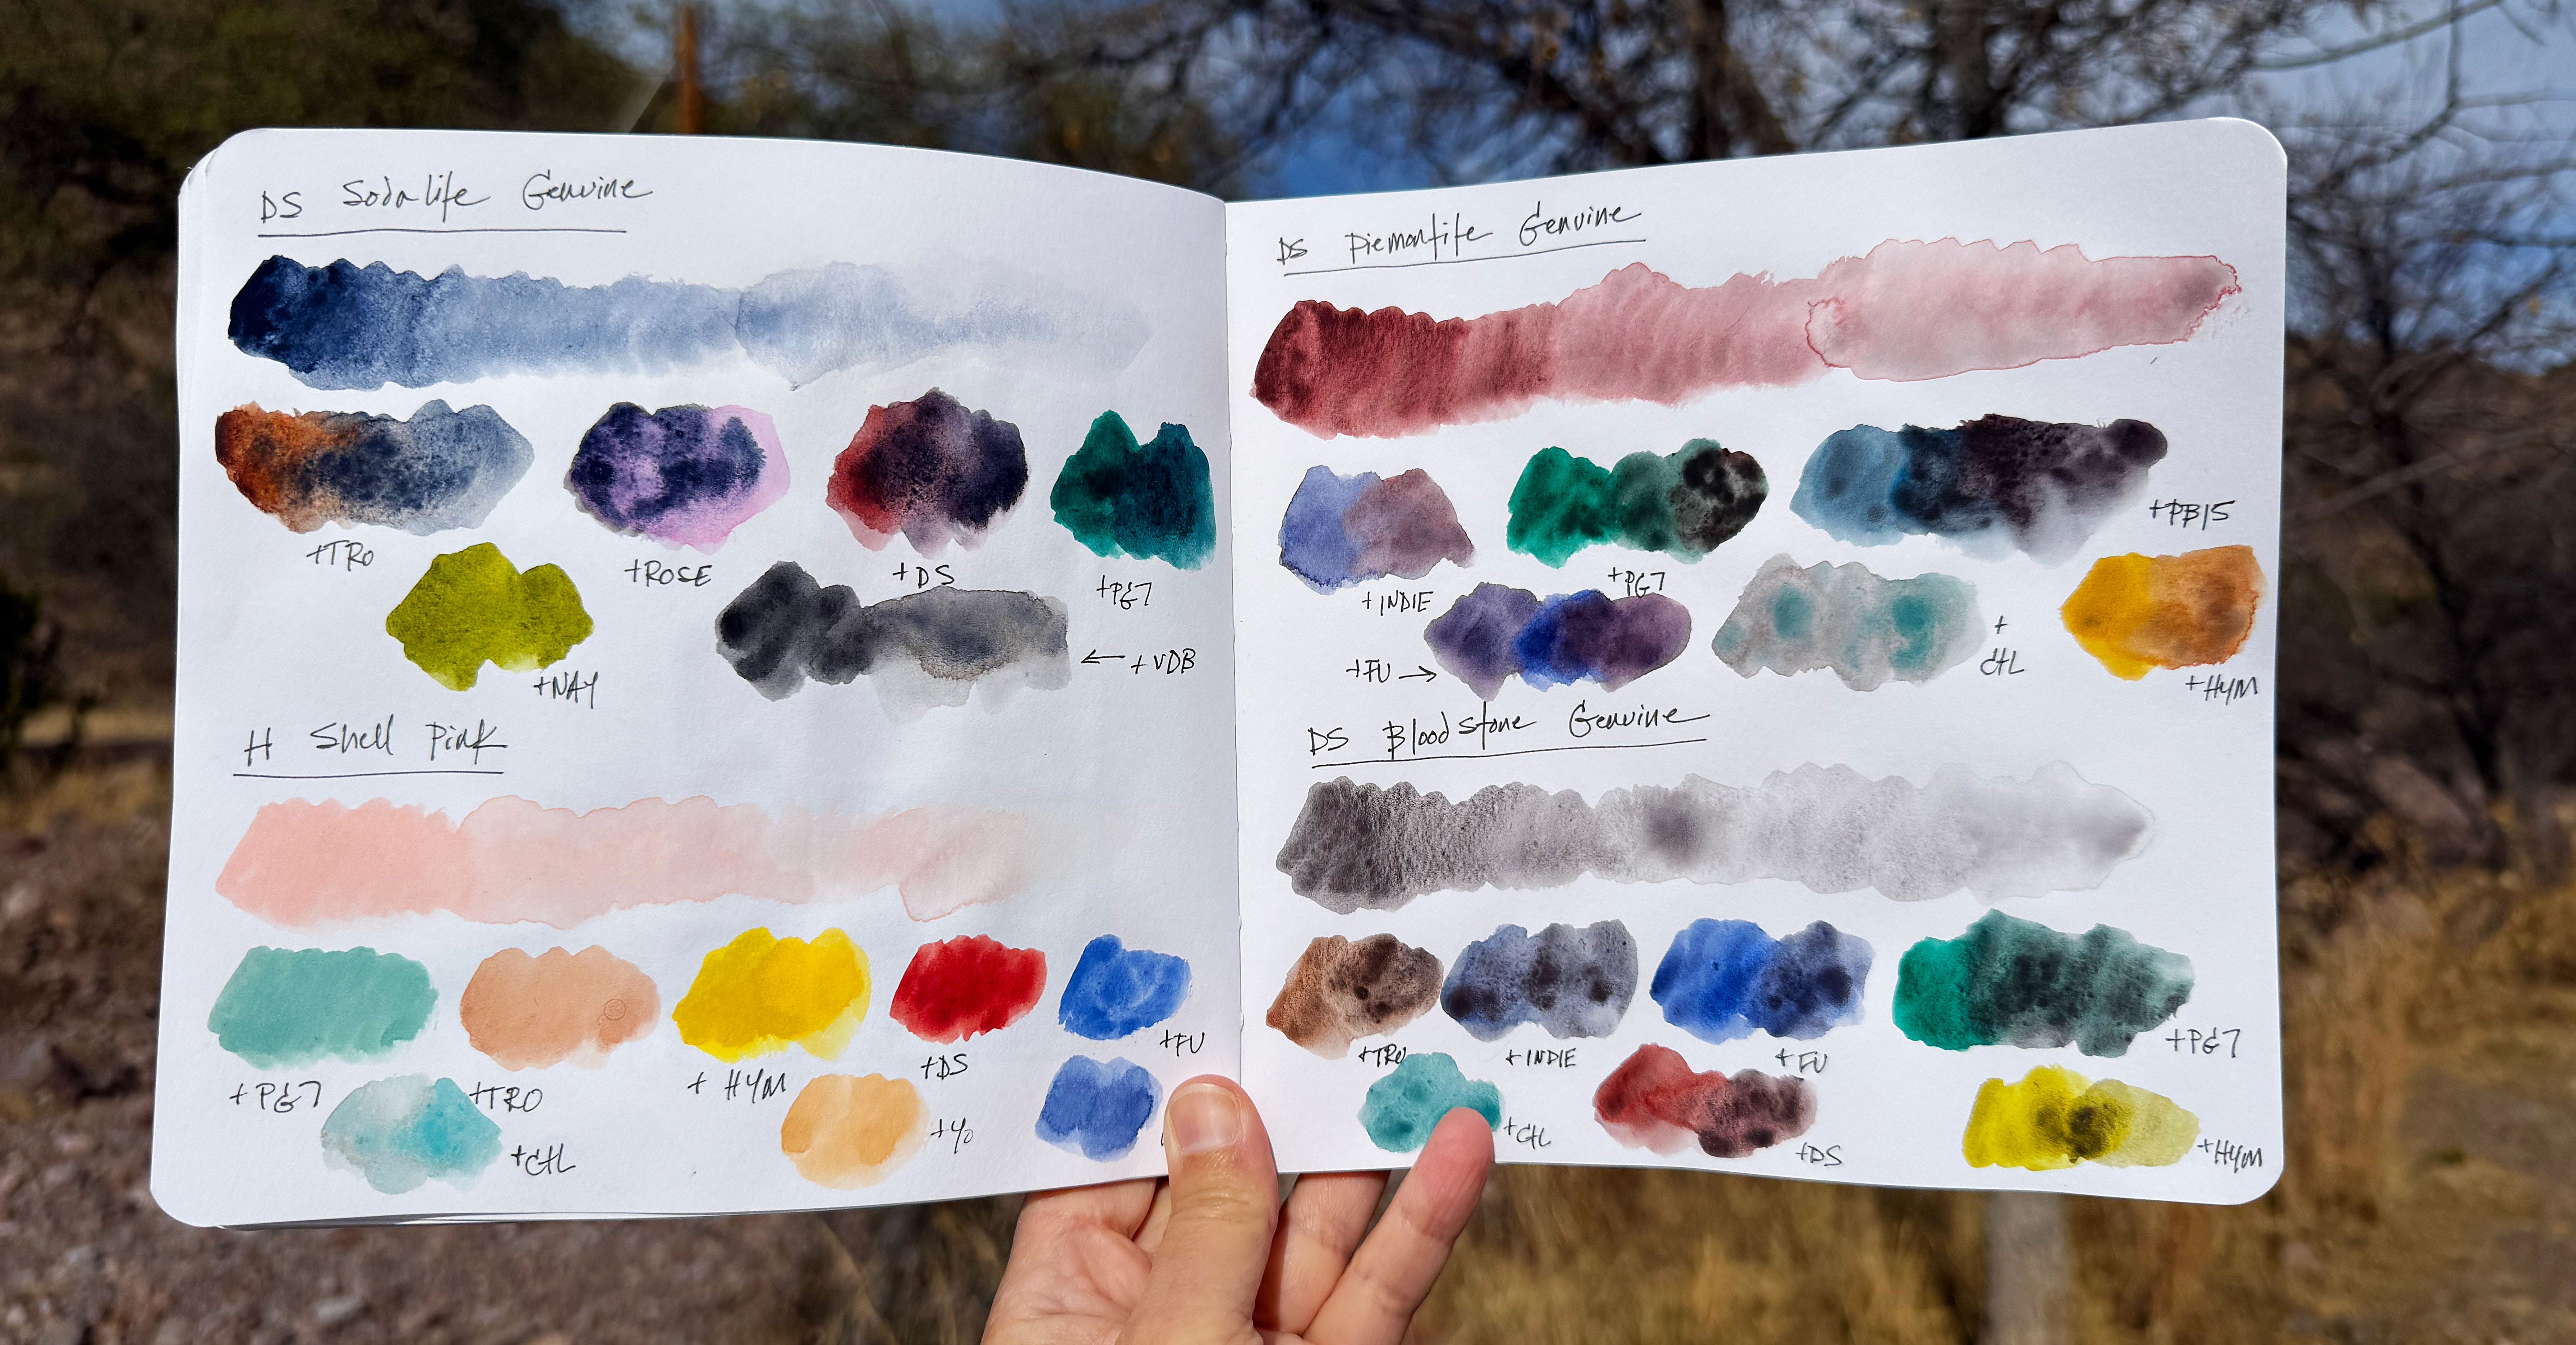 DS Sodalite Genuine
+TRO
+ROSE
+DS
+PG7
+NAY
← +VDB
H Shell Pink
+PG7
+TRO
+HYM
+DS
+FU
+CTL
+YO
DS Piemontite Genuine
+INDIE
+PG7
+PB15
+FU →
+
CTL
+HYM
DS Bloodstone Genuine
+TRO
+INDIE
+FU
+PG7
+CTL
+DS
+HYM